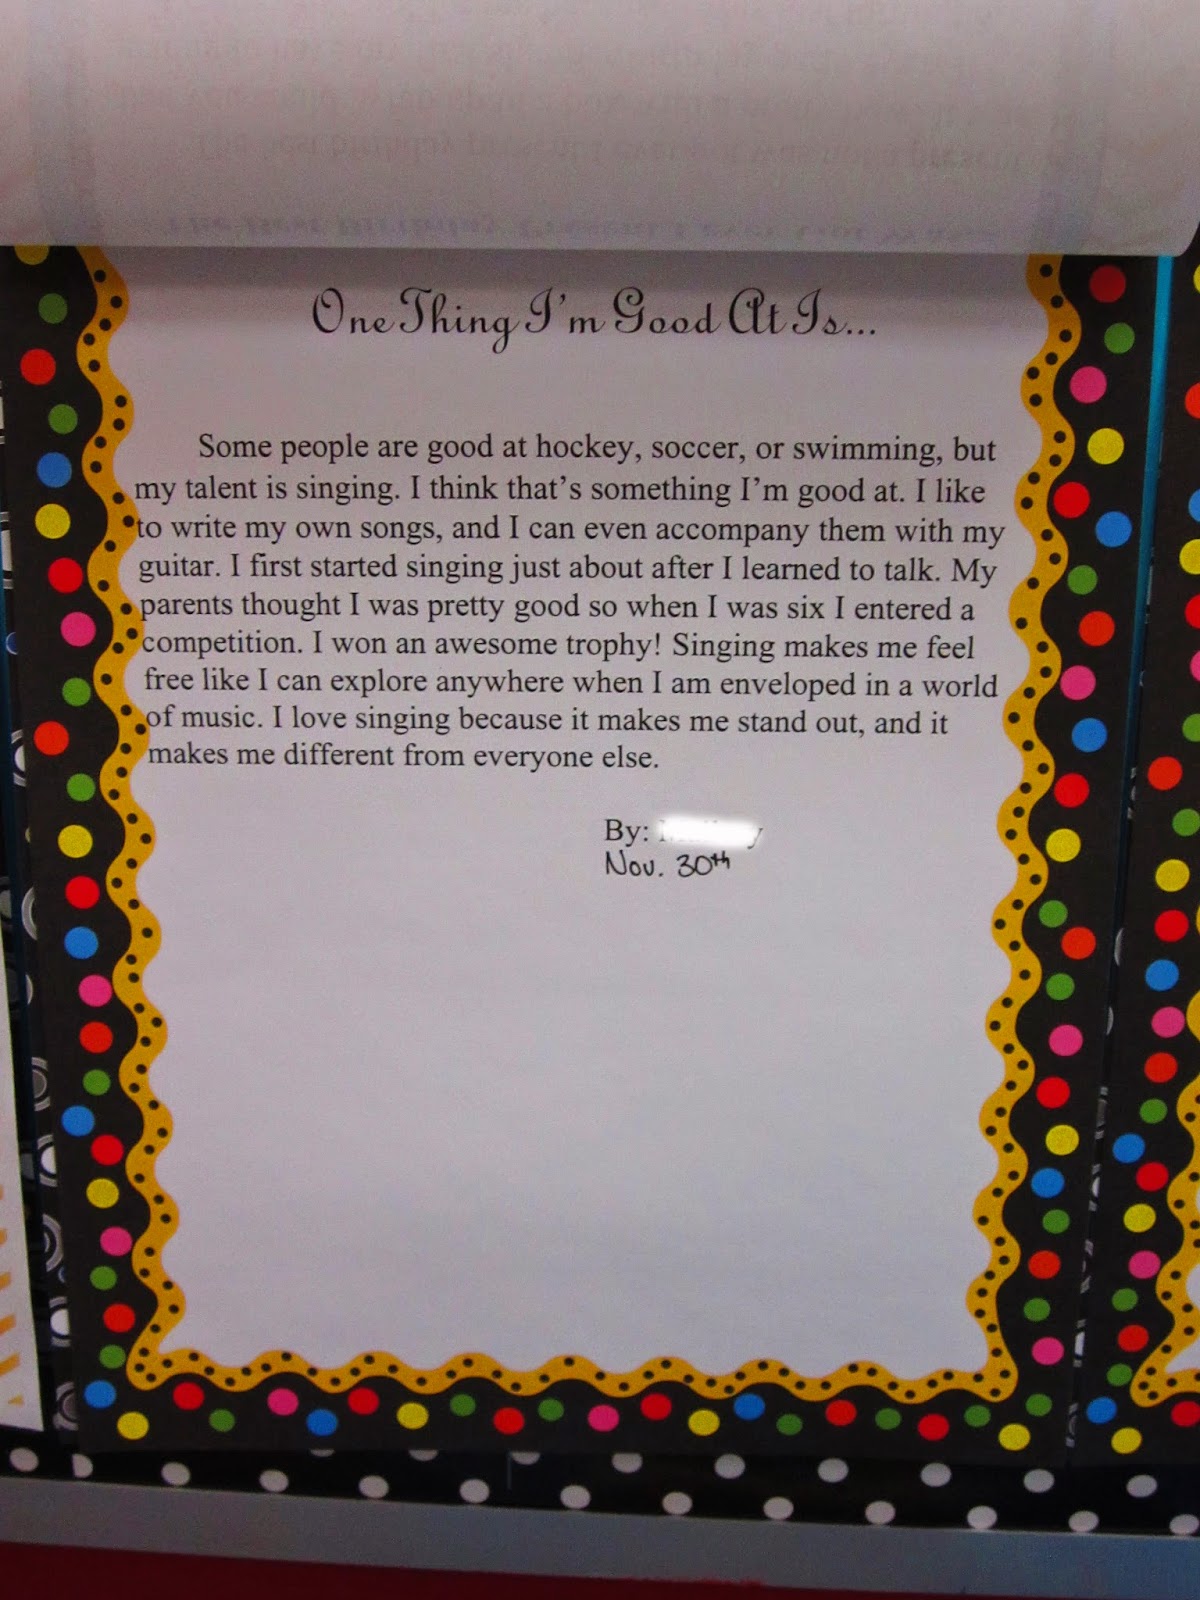 One Thing I'm Good At Is...
Some people are good at hockey, soccer, or swimming, but
my talent is singing. I think that's something I'm good at. I like
to write my own songs, and I can even accompany them with my
guitar. I first started singing just about after I learned to talk. My
parents thought I was pretty good so when I was six I entered a
competition. I won an awesome trophy! Singing makes me feel
free like I can explore anywhere when I am enveloped in a world
of music. I love singing because it makes me stand out, and it
makes me different from everyone else.
By:
Nov. 30th